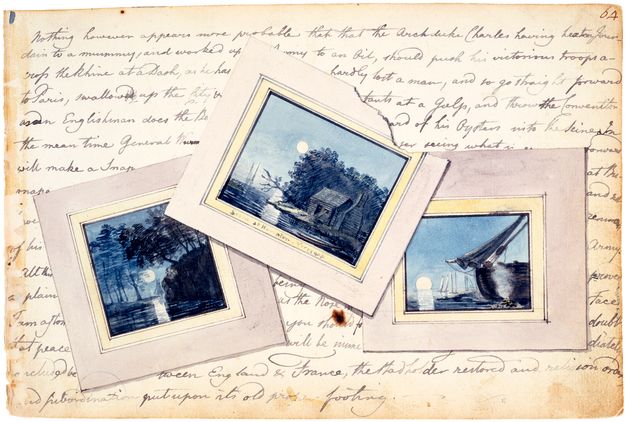 64
Nothing however appears more probable that that the Arch duke Charles having beaten Jour-
dain to a mummy, and worked up Army to an Oil, should push his victorious troops a-
cross the Rhine at a Dash, as he has hardly lost a man, and so go straight forward
to Paris, swallowed up the City at a Gulp, and throw the Convention
as an Englishman does the Be ard of his Oysters into the Seine. In
the mean time General Wurm ser seeing what is onwar
will make a Snap at the
mapa and
wi
of his Army
All this being prover
a plain as the Nose Face
From a you should doubt
that peace will be imme diatel
concluded be tween England & France, the Stadholder restored and religion order
and subordination put upon its old proper footing.